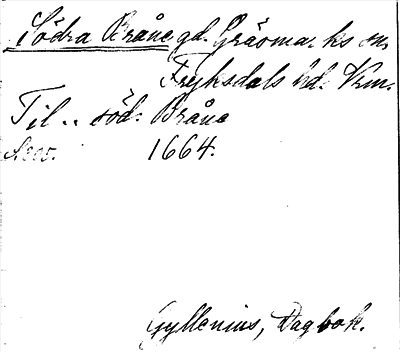 Södra Bråne gd. Gräsma. ks sn,
Fryksdals hd. Vrm.
Til .. söd. Bråne
1664.
Gyllenius, Dagbok.